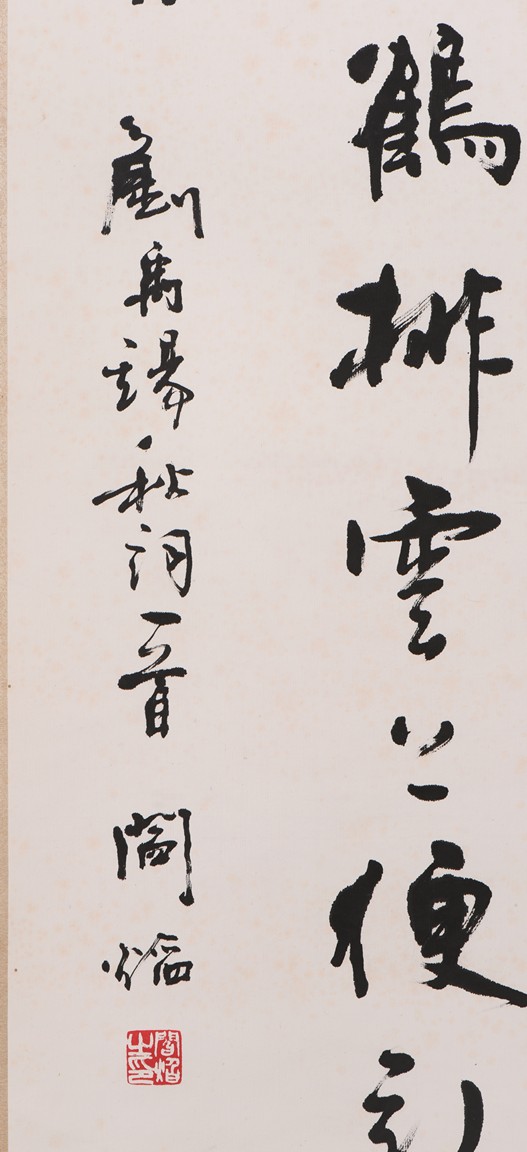 鶴排雲上便引
劉禹錫秋詞一首 閻焰
閻焰之印